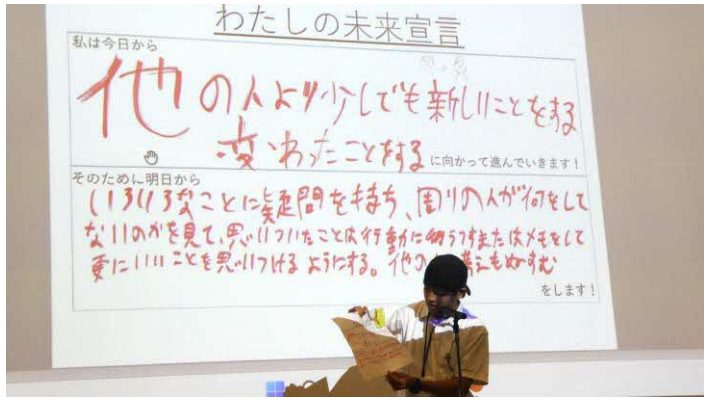 わたしの未来宣言
私は今日から
他の人より少しでも新しいことをする
変わったことをする に向かって進んでいきます!
そのために明日から
いろいろなことに疑問を持ち、周りの人が何をして
ないのかを見て、思いついたことは行動に移うつすまたはメモをして
更にいいことを思いつけるようにする。他の人の考えもぬすむ
をします!